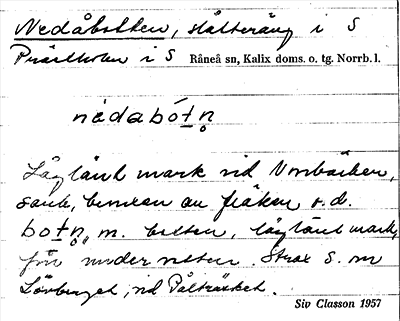 Nedåbotten, slåtteräng i S
Prästholm i S Råneå sn, Kalix doms. o. tg. Norrb. l.
nèdabótn̥
Låglänt mark vid Norrbäcken,
sank, bevuxen av fräken o.d.
botn̥, m. botten, låglänt mark,
för under vatten. Strax S. om
Lövberget, vid Pålträsket.
Siv Classon 1957